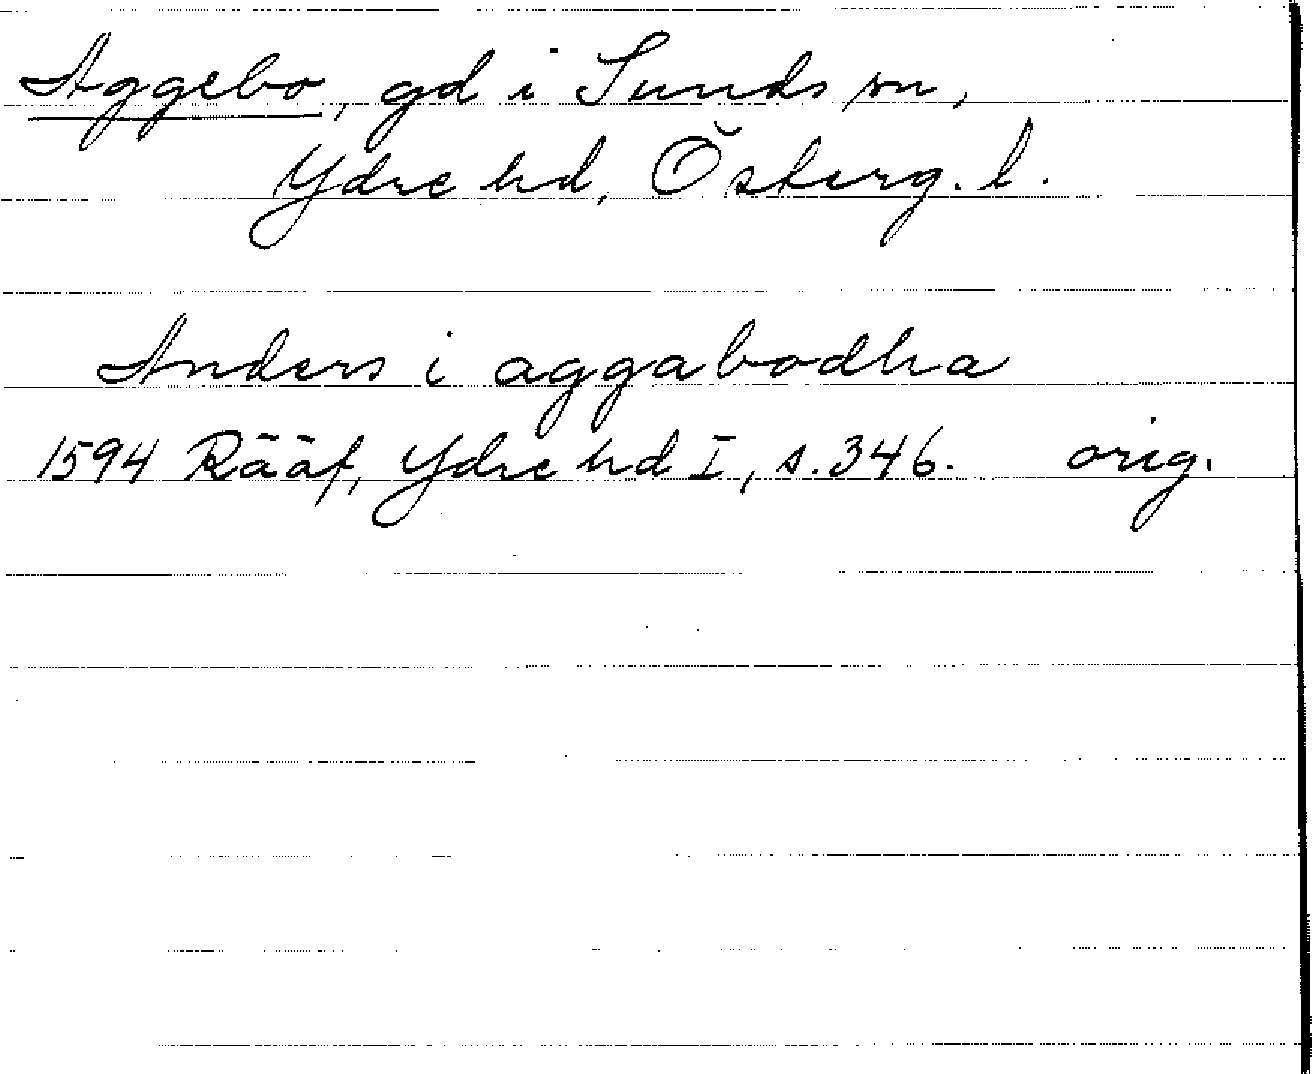 Aggebo, gd i Sunds sn,
Ydre hd, Österg. l.
Anders i aggabodha
1594 Rääf, Ydre hd I, s. 346. orig.